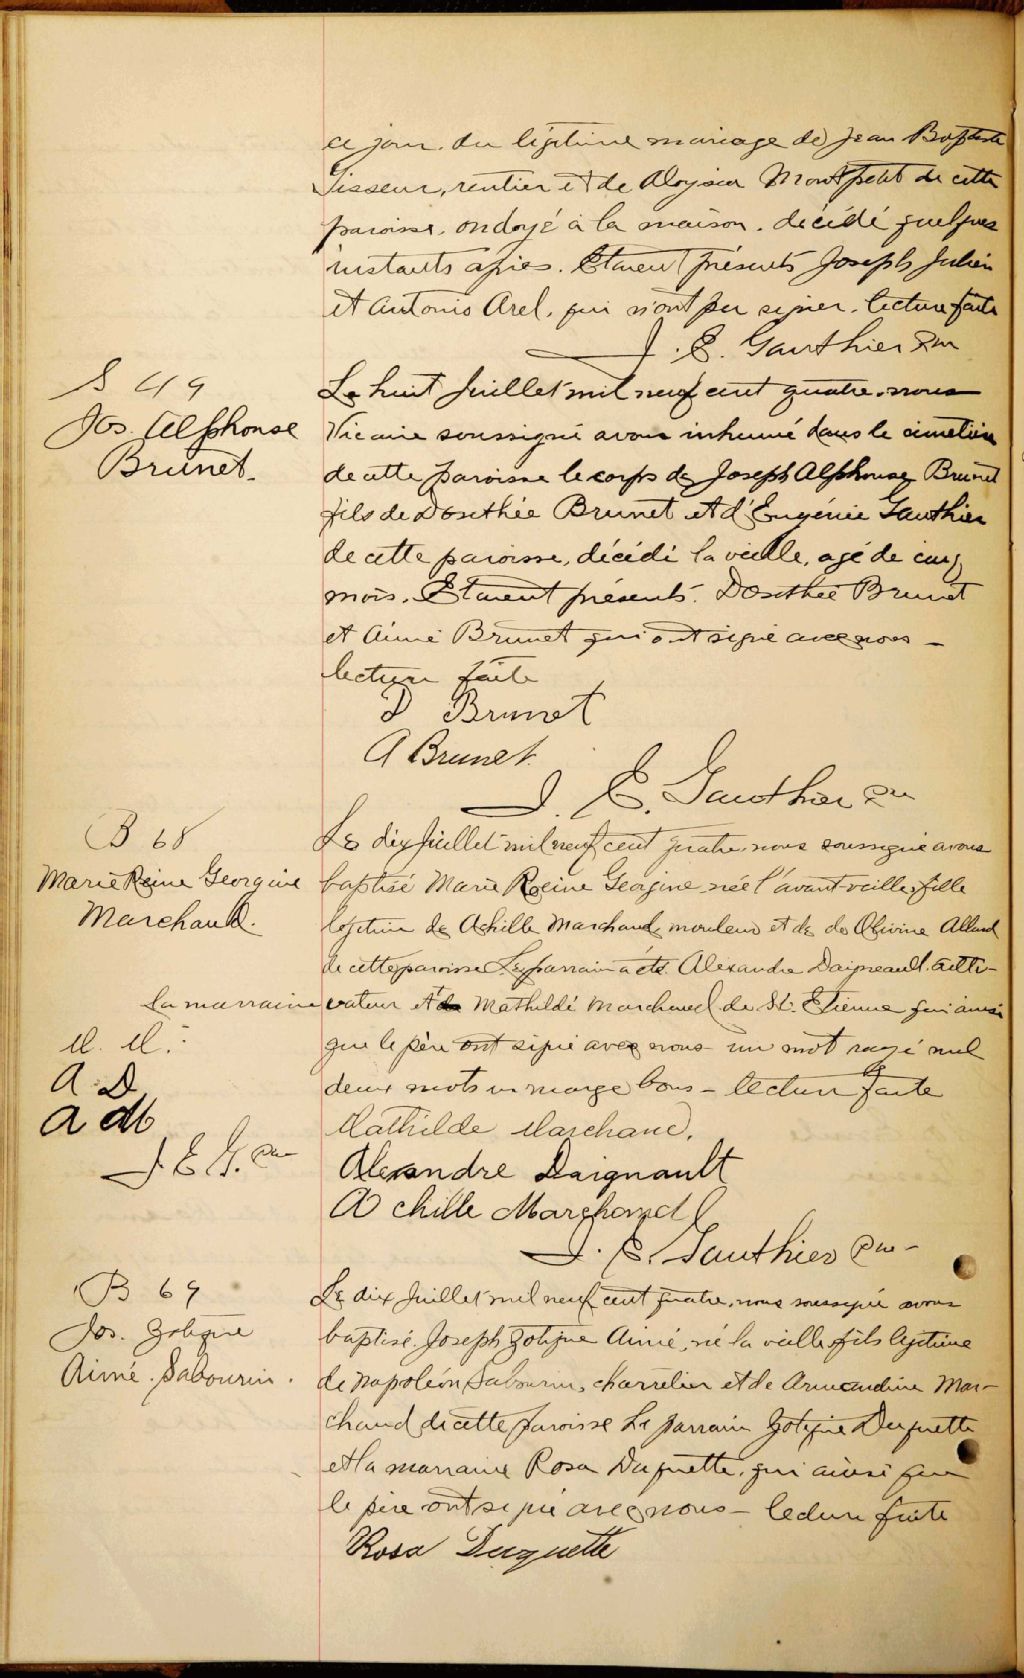 ce jour du légitime mariage de Jean Baptiste
Tisseur, rentier et de Aloysia Montpetit de cette
paroisse, ondoyé à la maison, décédé quelques
instants après. Etaient présents Joseph Julien
et Antonio Arel, qui n'ont pu signer. lecture faite
J. E. Gauthier Ptre
S 49
Jos. Alphonse
Brunet.
Le huit Juillet mil neuf cent quatre, nous
Vicaire soussigné avons inhumé dans le cimetière
de cette paroisse le corps de Joseph Alphonse Brunet
fils de Dosithée Brunet et d'Eugénie Gauthier
de cette paroisse, décédé la veille, agé de cinq
mois. Etaient présents. Dosithée Brunet
et Aimé Brunet qui ont signé avec nous –
lecture faite
D Brunet
A Brunet.
J. E. Gauthier Ptre
B 68
Marie Reine Georgine
Marchand.
Le dix Juillet mil neuf cent quatre, nous soussigné avons
baptisé Marie Reine Georgine, née l'avant-veille, fille
légitime de Achille Marchand, mouleur et de de Olivine Allard
de cette paroisse Le parrain a été Alexandre Daigneault culti-
la marraine vateur et de Mathilde Marchand de St. Etienne qui ainsi
que le père ont signé avec nous un mot rayé nul
deux mots en marge bons – lecture faite
M. M.
A D
A M
J. E G. Ptre
Mathilde Marchand.
Alexandre Daignault
Achille Marchand
J. E. Gauthier Ptre –
B 69
Jos. Zotique
Aimé Sabourin.
Le dix Juillet mil neuf cent quatre, nous soussigné avons
baptisé Joseph Zotique Aimé, né la veille, fils légitime
de Napoléon Sabourin, charretier et de Armandine Mar-
chand de cette paroisse Le parrain Zotique Duquette
et la marraine Rosa Duquette, qui ainsi que
le père ont signé avec nous – lecture faite
Rosa Duquette